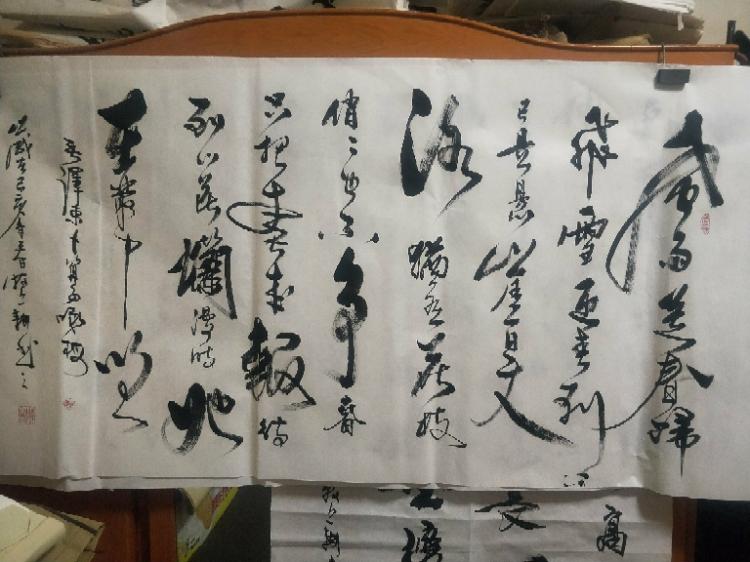 風雨送春歸
飛雪迎春到
已是懸崖百丈
冰猶有花枝
俏〻也不争春
只把春來報待
到山花爛漫時她
在叢中笑
毛澤東卜算子咏梅
歲在己亥年春
高